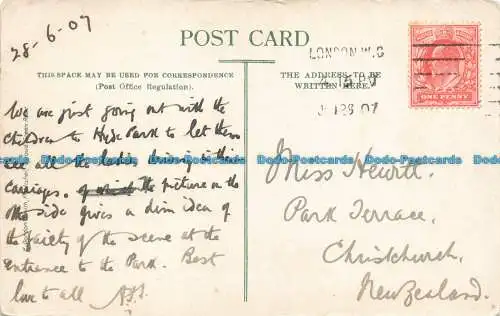 28-6-07
POST CARD
THIS SPACE MAY BE USED FOR CORRESPONDENCE
(Post Office Regulation).
We are just going out with the
children to Hyde Park to let them
see all the ladies driving in their
carriages. of which the picture on the
other side gives a dim idea of
the gaiety of the scene at the
entrance to the Park. Best
love to all
THE ADDRESS TO BE
WRITTEN HERE.
LONDON W.C
ONE PENNY
Miss Hewitt.
Park Terrace,
Christchurch,
New Zealand.
Dodo-Postcards.com Dodo-Postcards.com Dodo-Postcards.com Dodo-Postcards.com